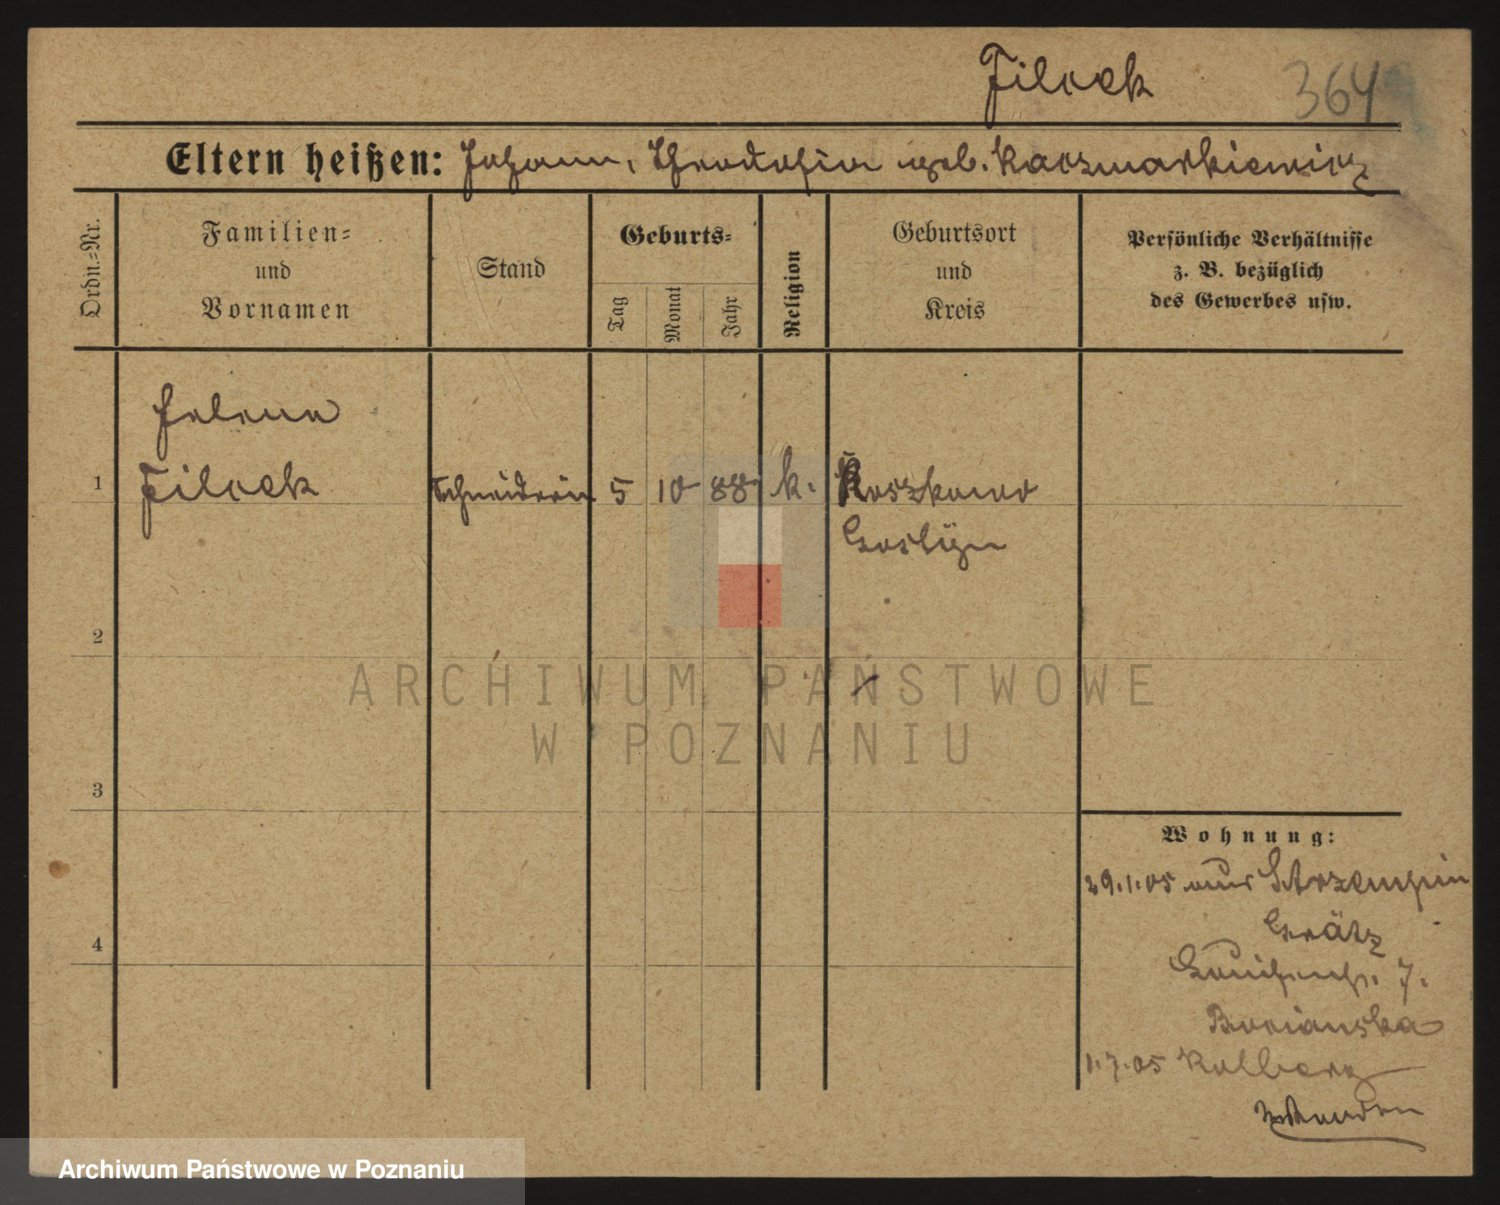 Filock
364
Eltern heißen: Johann, Theodosia geb. Kaczmarkiewicz
Ordn.-Nr.
Familien-
und
Vornamen
Stand
Geburts-
Tag
Monat
Jahr
Religion
Geburtsort
und
Kreis
Persönliche Verhältnisse
z. B. bezüglich
des Gewerbes usw.
Helena
1 Filock Schneiderin 5 10 88 k. Koszkowo
Gostyn
2
ARCHIWUM PAŃSTWOWE
W POZNANIU
3
Wohnung:
29.1.05 aus Strzempin
Grätz
4
7.
Borianska
1.7.05 Kolberg
Archiwum Państwowe w Poznaniu